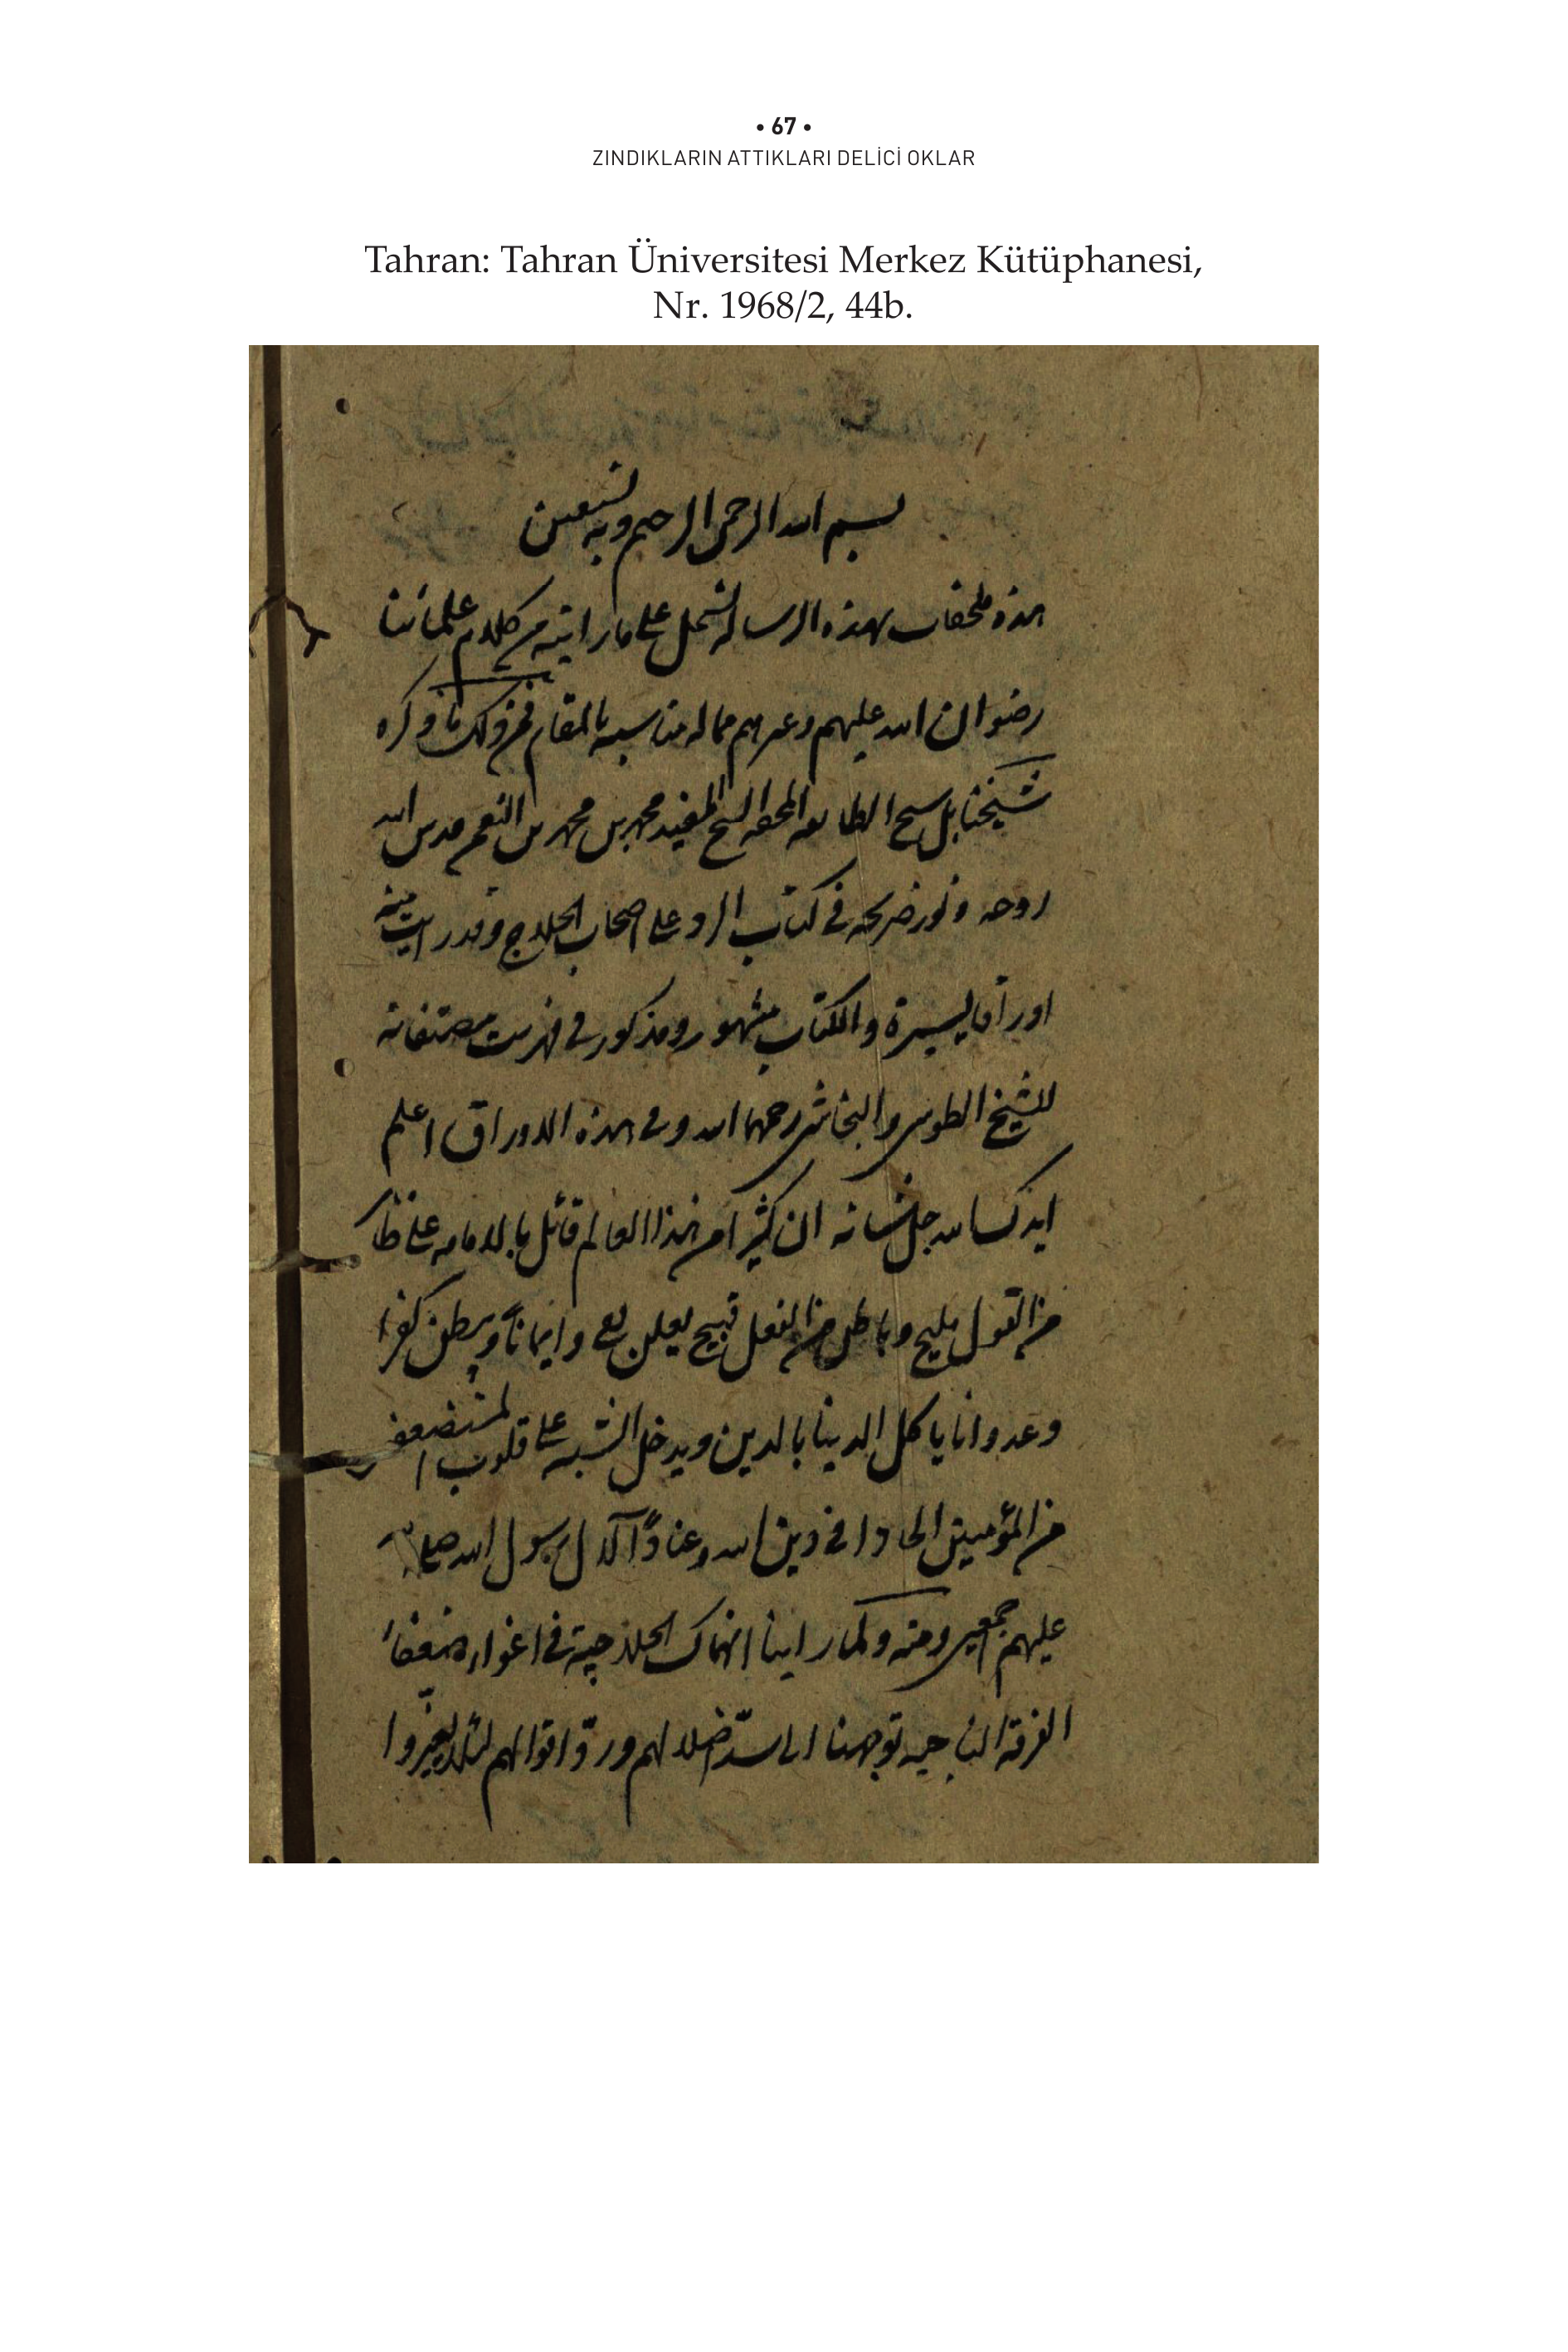 • 67 •
ZINDIKLARIN ATTIKLARI DELİCİ OKLAR
Tahran: Tahran Üniversitesi Merkez Kütüphanesi,
Nr. 1968/2, 44b.
بسم الله الرحمن الرحيم وبه نستعين
هذه ملحقات بهذه الرسالة تشتمل على ما رايته من كلام علمائنا
رضوان الله عليهم وغيرهم مما له مناسبة بالمقام فمن ذلك ما ذكره
شيخنا بل شيخ الطائفة المحقة الشيخ المفيد محمد بن محمد بن النعم قدس الله
روحه ونور ضريحه في كتاب الرد على اصحاب الحلاج وقد رايت منه
اوراقا يسيرة والكتاب مشهور ومذكور في فهرست مصنفاته
للشيخ الطوسي والنجاشي رحمهما الله وفي هذه الاوراق اعلم
ايدك الله جل شانه ان كثيرا من هذا العالم قائل بالامامه على ظاهر
من القول مليح وباطن من الفعل قبيح يعلن وايمانًا ويبطن كفرا
وعدوانا ياكل الدينا بالدين ويدخل الشبه على قلوب المستضعفين
من المؤمنين الحادا في دين الله وعنادًا لآل رسول الله صلى الله
عليهم اجمعين ومنه ولما راينا انهماك الحلاجية في اغواء ضعفاء
الفرقة الناجيه توجهنا الى سدّ ضلالهم وردّ اقوالهم لئلا يغيّروا